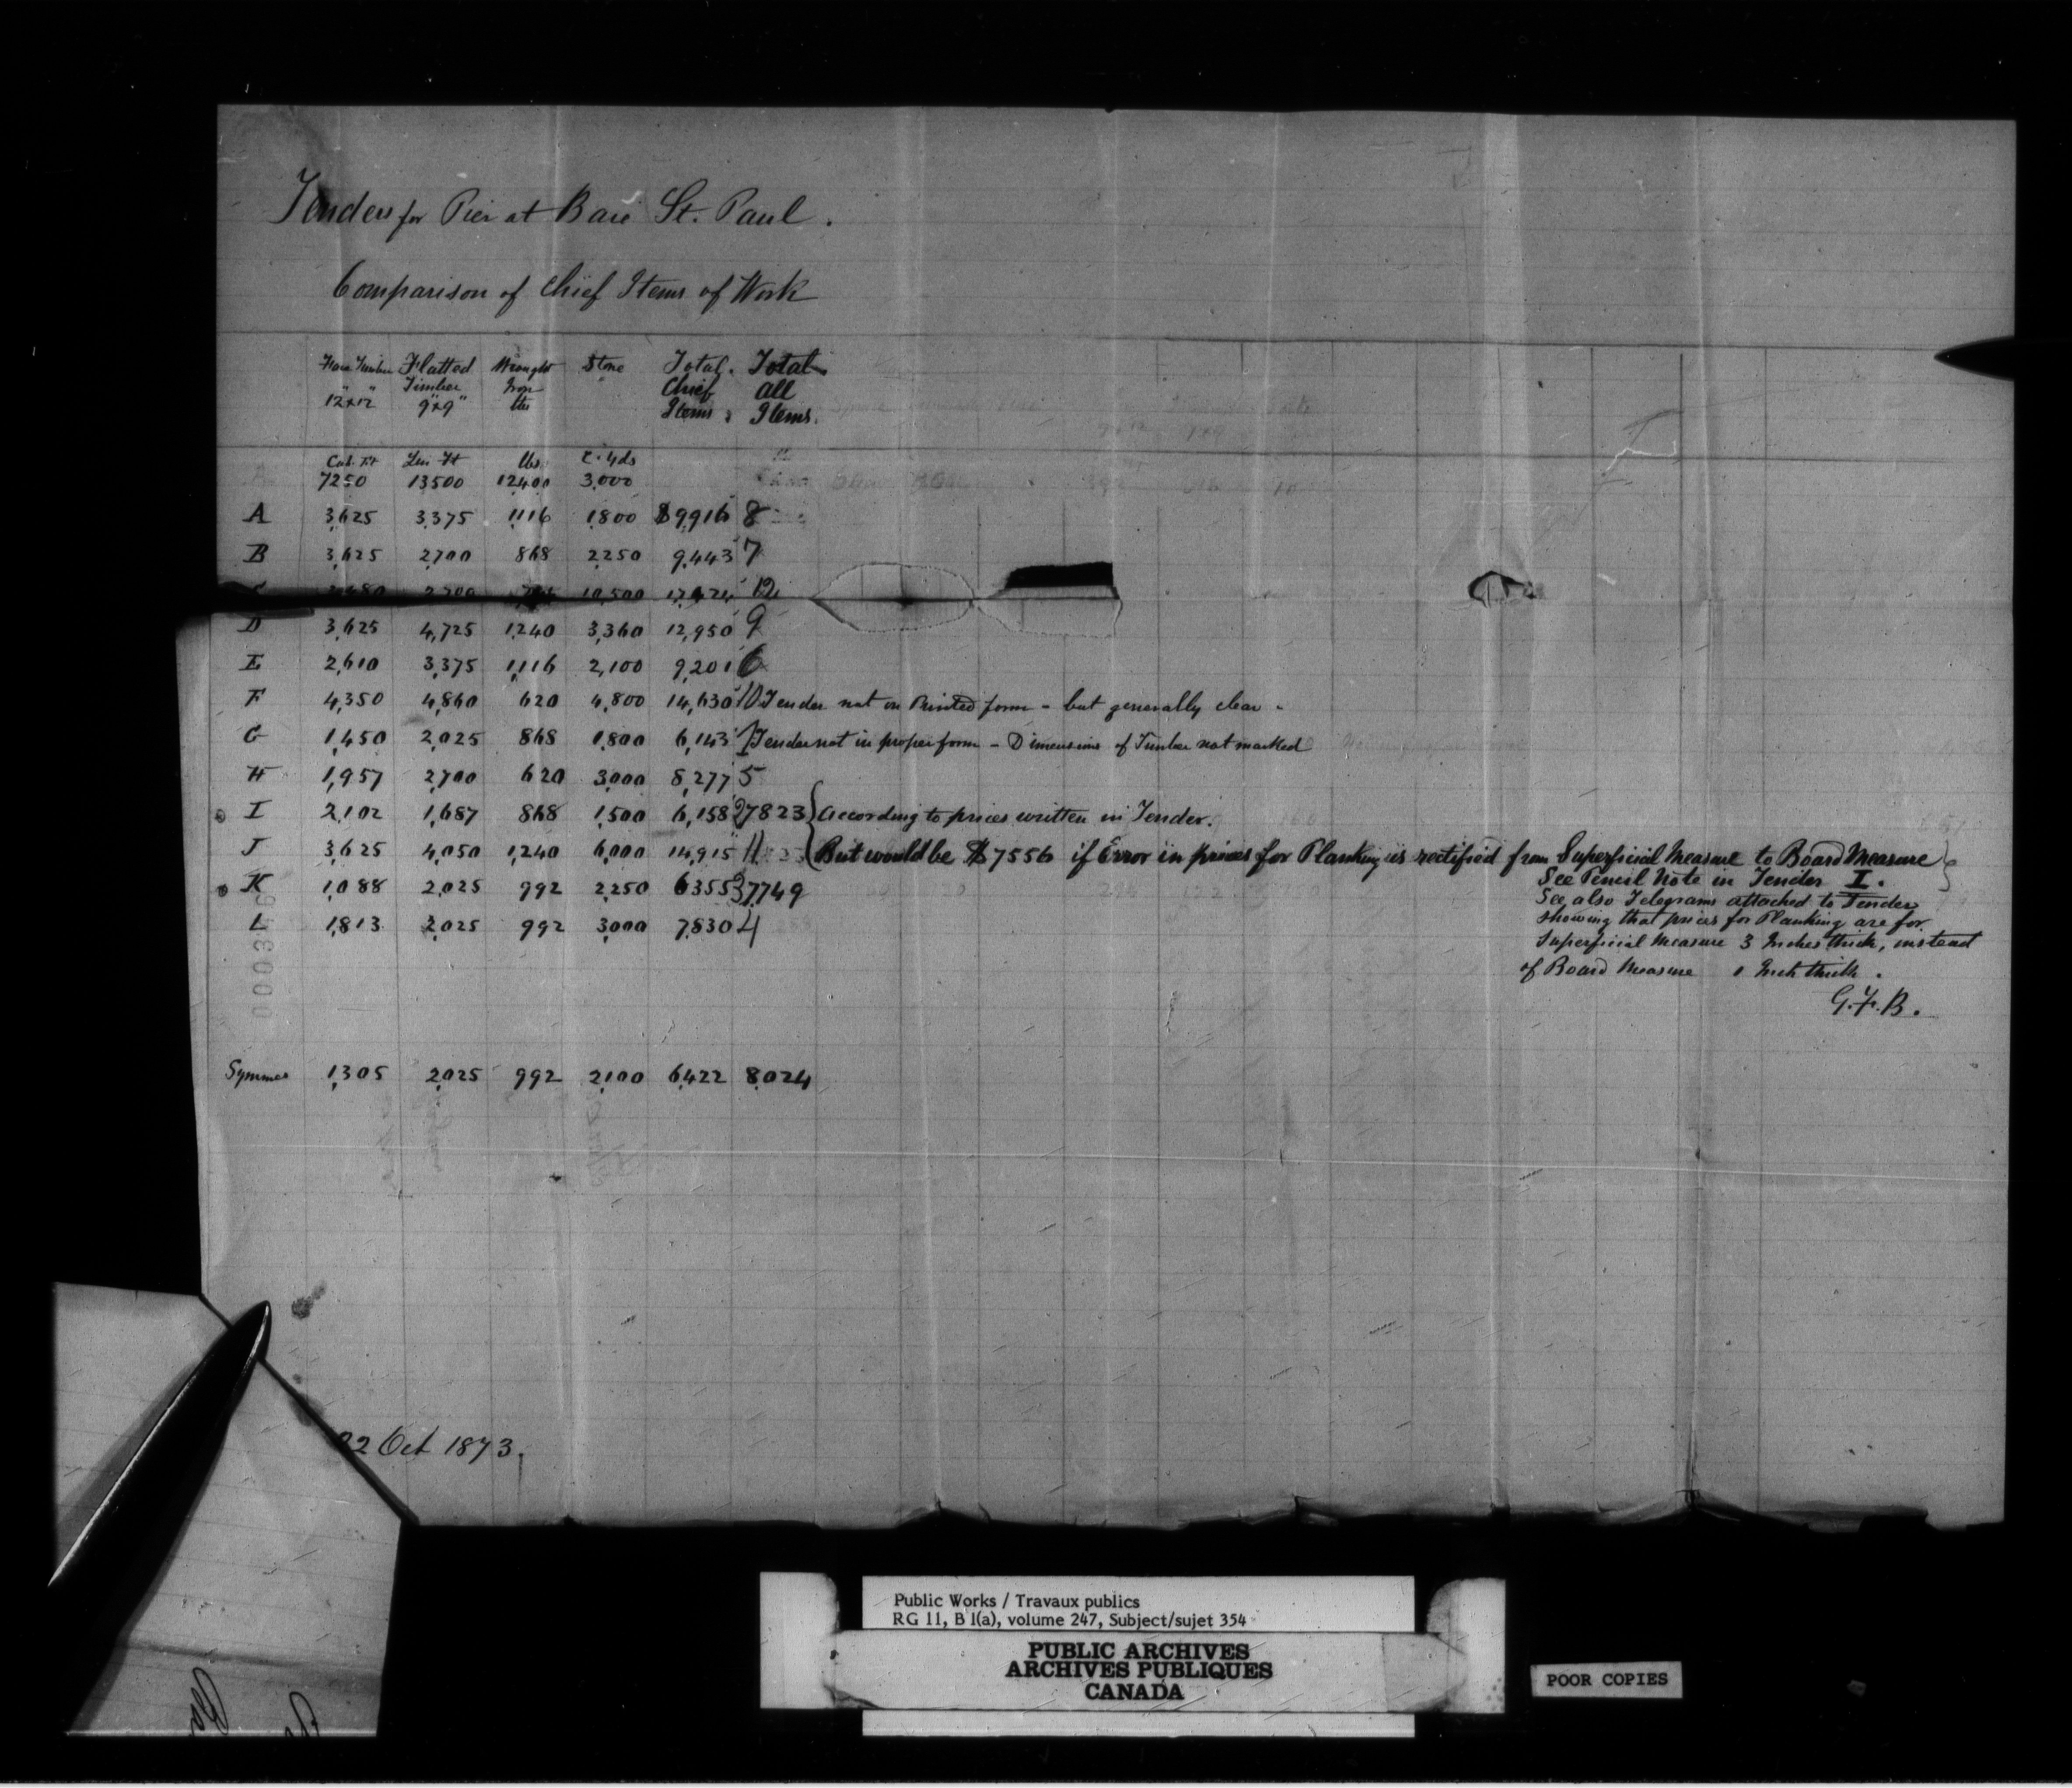 Tenders for Pier at Baie St. Paul.
Comparison of Chief Items of Work
Face Timber 12"x12" Flatted Timber 9"x9" Wrought Iron lbs Stone Total Chief Items Total All Items.
Cub. Ft Lin Ft lbs C. Yds
7250 13500 12400 3,000
A 3,625 3,375 1,116 1,800 $9,916 8
B 3,625 2,700 868 2,250 9,443 7
2,700 10,500 12
D 3,625 4,725 1,240 3,360 12,950 9
E 2,610 3,375 1,116 2,100 9,201 6
F 4,350 4,860 620 4,800 14,630 10 Tender not on Printed form - but generally clear -
G 1,450 2,025 868 1,800 6,143 1 Tender not in proper form - Dimensions of Timber not marked
H 1,957 2,700 620 3,000 8,277 5
I 2,102 1,687 868 1,500 6,158 2 7823 { According to prices written in Tender.
J 3,625 4,050 1,240 6,000 14,915 11 But would be $7556 if Error in prices for Planking is rectified from Superficial Measure to Board Measure }
K 1,088 2,025 992 2,250 6355 3 7,749
See Pencil Note in Tender I.
See also Telegrams attached to Tender
L 1,813 2,025 992 3,000 7,830 4
showing that prices for Planking are for
Superficial Measure 3 Inches thick, instead
of Board Measure 1 Inch thick.
G.F.B.
Symmes 1,305 2,025 992 2,100 6,422 8,024
22 Oct 1873.
Public Works / Travaux publics
RG 11, B 1(a), volume 247, Subject/sujet 354
PUBLIC ARCHIVES
ARCHIVES PUBLIQUES
CANADA
POOR COPIES